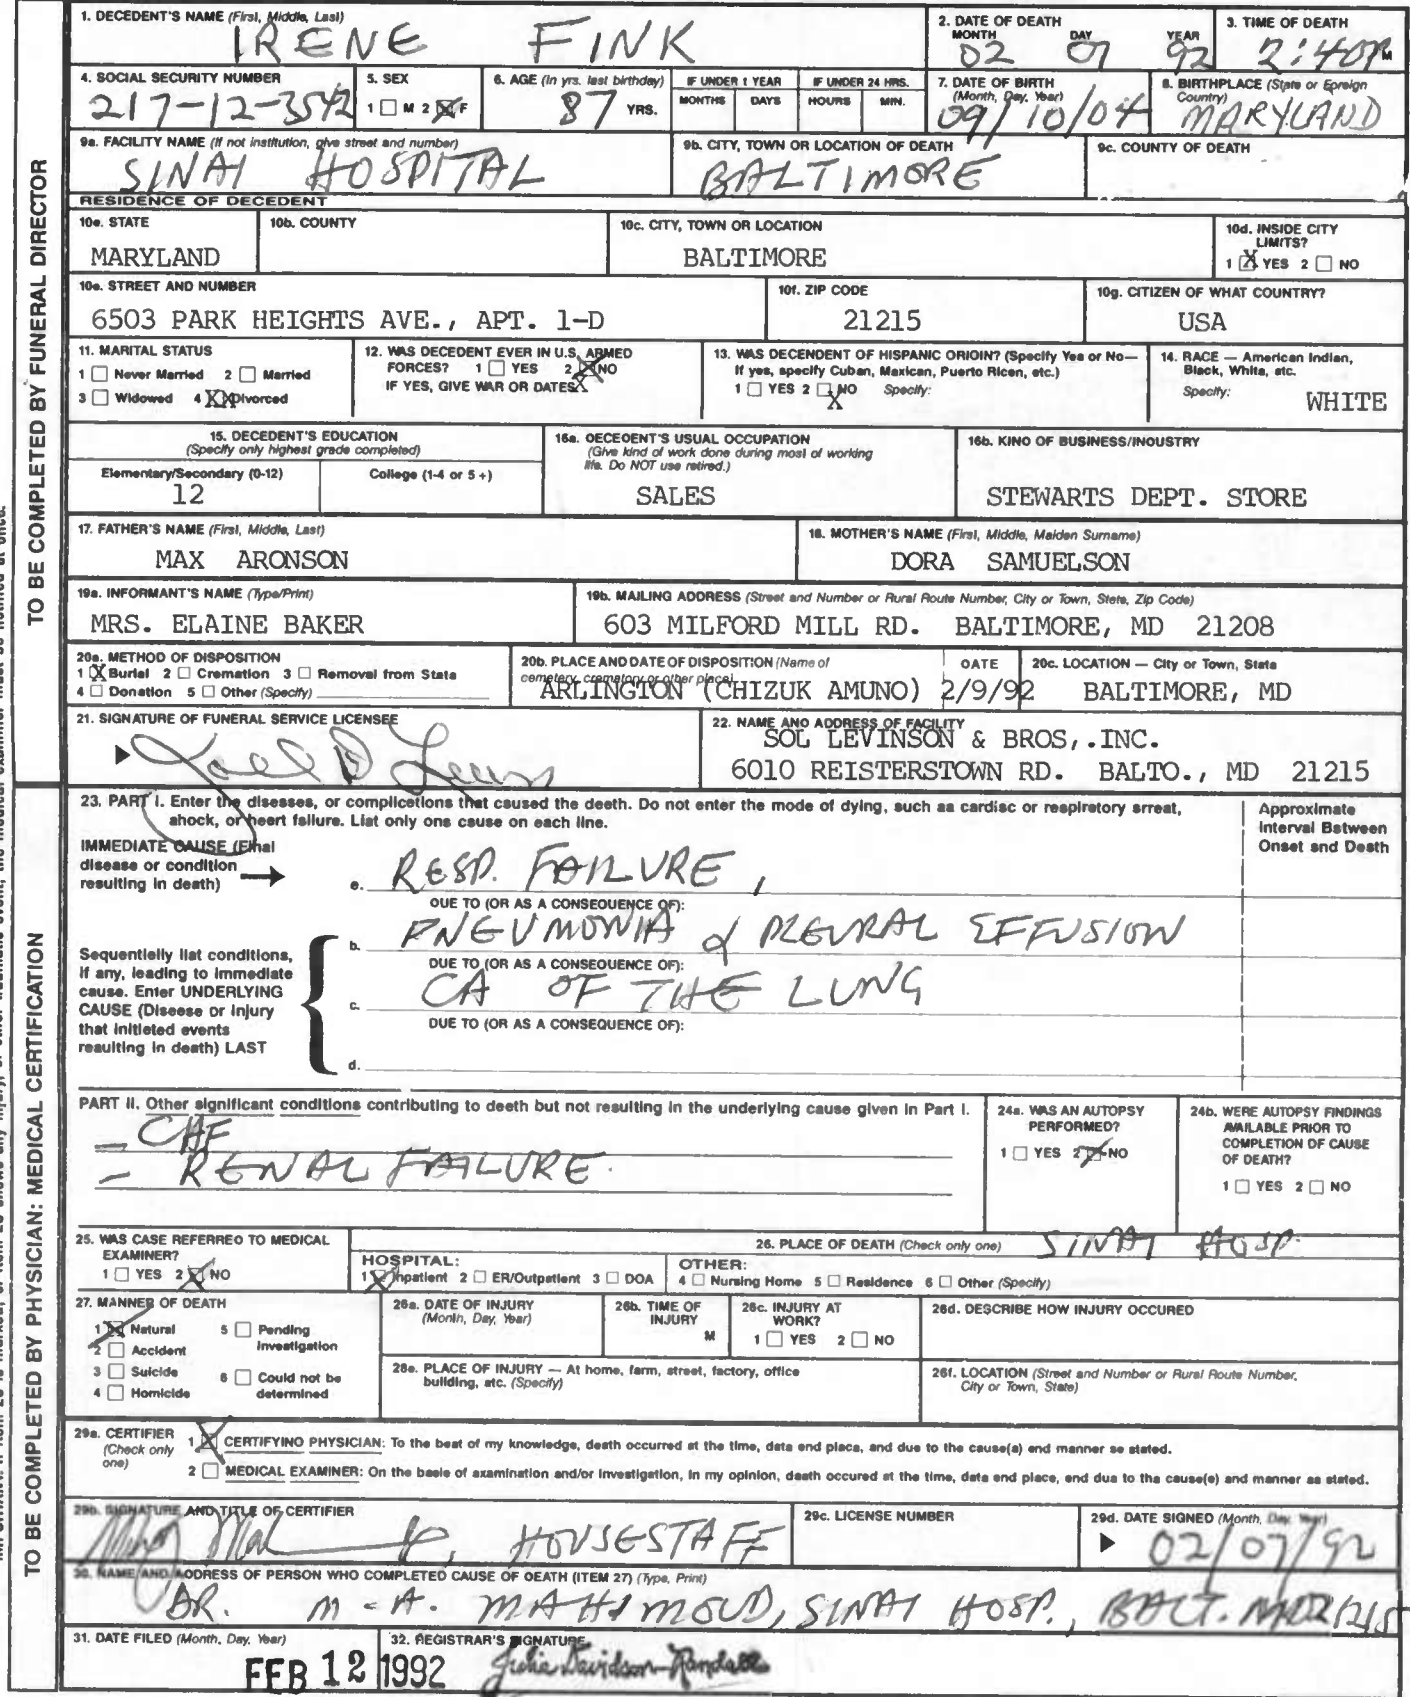 1. DECEDENT'S NAME (First, Middle, Last)
IRENE FINK
2. DATE OF DEATH
MONTH DAY YEAR
02 07 92
3. TIME OF DEATH
2:40 P M
4. SOCIAL SECURITY NUMBER
217-12-3542
5. SEX
1 □ M 2 ☒ F
6. AGE (In yrs. last birthday)
87 YRS.
IF UNDER 1 YEAR
MONTHS DAYS
IF UNDER 24 HRS.
HOURS MIN.
7. DATE OF BIRTH
(Month, Day, Year)
09/10/04
8. BIRTHPLACE (State or Foreign
Country)
MARYLAND
9a. FACILITY NAME (If not institution, give street and number)
SINAI HOSPITAL
9b. CITY, TOWN OR LOCATION OF DEATH
BALTIMORE
9c. COUNTY OF DEATH
RESIDENCE OF DECEDENT
10a. STATE
MARYLAND
10b. COUNTY
10c. CITY, TOWN OR LOCATION
BALTIMORE
10d. INSIDE CITY
LIMITS?
1 ☒ YES 2 □ NO
10e. STREET AND NUMBER
6503 PARK HEIGHTS AVE., APT. 1-D
10f. ZIP CODE
21215
10g. CITIZEN OF WHAT COUNTRY?
USA
11. MARITAL STATUS
1 □ Never Married 2 □ Married
3 □ Widowed 4 XX Divorced
12. WAS DECEDENT EVER IN U.S. ARMED
FORCES? 1 □ YES 2 ☒ NO
IF YES, GIVE WAR OR DATES
13. WAS DECENDENT OF HISPANIC ORIGIN? (Specify Yes or No—
If yes, specify Cuban, Mexican, Puerto Rican, etc.)
1 □ YES 2 □ NO Specify:
X
14. RACE — American Indian,
Black, White, etc.
Specify:
WHITE
15. DECEDENT'S EDUCATION
(Specify only highest grade completed)
Elementary/Secondary (0-12)
12
College (1-4 or 5 +)
16a. DECEDENT'S USUAL OCCUPATION
(Give kind of work done during most of working
life. Do NOT use retired.)
SALES
16b. KIND OF BUSINESS/INDUSTRY
STEWARTS DEPT. STORE
17. FATHER'S NAME (First, Middle, Last)
MAX ARONSON
18. MOTHER'S NAME (First, Middle, Maiden Surname)
DORA SAMUELSON
19a. INFORMANT'S NAME (Type/Print)
MRS. ELAINE BAKER
19b. MAILING ADDRESS (Street and Number or Rural Route Number, City or Town, State, Zip Code)
603 MILFORD MILL RD. BALTIMORE, MD 21208
20a. METHOD OF DISPOSITION
1 ☒ Burial 2 □ Cremation 3 □ Removal from State
4 □ Donation 5 □ Other (Specify)
20b. PLACE AND DATE OF DISPOSITION (Name of
cemetery, crematory or other place)
ARLINGTON (CHIZUK AMUNO)
DATE
2/9/92
20c. LOCATION — City or Town, State
BALTIMORE, MD
21. SIGNATURE OF FUNERAL SERVICE LICENSEE
22. NAME AND ADDRESS OF FACILITY
SOL LEVINSON & BROS,.INC.
6010 REISTERSTOWN RD. BALTO., MD 21215
23. PART I. Enter the diseases, or complications that caused the death. Do not enter the mode of dying, such as cardiac or respiratory arrest,
shock, or heart failure. List only one cause on each line.
Approximate
Interval Between
Onset and Death
IMMEDIATE CAUSE (Final
disease or condition
resulting in death)
a. RESP. FAILURE,
DUE TO (OR AS A CONSEQUENCE OF):
b. PNEUMONIA & PLEURAL EFFUSION
DUE TO (OR AS A CONSEQUENCE OF):
c. CA OF THE LUNG
DUE TO (OR AS A CONSEQUENCE OF):
d.
Sequentially list conditions,
if any, leading to immediate
cause. Enter UNDERLYING
CAUSE (Disease or injury
that initiated events
resulting in death) LAST
PART II. Other significant conditions contributing to death but not resulting in the underlying cause given in Part I.
- CHF
- RENAL FAILURE.
24a. WAS AN AUTOPSY
PERFORMED?
1 □ YES 2 ☒ NO
24b. WERE AUTOPSY FINDINGS
AVAILABLE PRIOR TO
COMPLETION OF CAUSE
OF DEATH?
1 □ YES 2 □ NO
25. WAS CASE REFERRED TO MEDICAL
EXAMINER?
1 □ YES 2 ☒ NO
26. PLACE OF DEATH (Check only one) SINAI HOSP.
HOSPITAL:
1 ☒ Inpatient 2 □ ER/Outpatient 3 □ DOA
OTHER:
4 □ Nursing Home 5 □ Residence 6 □ Other (Specify)
27. MANNER OF DEATH
1 ☒ Natural 5 □ Pending
Investigation
2 □ Accident
3 □ Suicide 6 □ Could not be
determined
4 □ Homicide
28a. DATE OF INJURY
(Month, Day, Year)
28b. TIME OF
INJURY
M
28c. INJURY AT
WORK?
1 □ YES 2 □ NO
28d. DESCRIBE HOW INJURY OCCURED
28e. PLACE OF INJURY — At home, farm, street, factory, office
building, etc. (Specify)
28f. LOCATION (Street and Number or Rural Route Number,
City or Town, State)
29a. CERTIFIER
(Check only
one)
1 ☒ CERTIFYING PHYSICIAN: To the best of my knowledge, death occurred at the time, date and place, and due to the cause(s) and manner as stated.
2 □ MEDICAL EXAMINER: On the basis of examination and/or investigation, in my opinion, death occured at the time, date and place, and due to the cause(s) and manner as stated.
29b. SIGNATURE AND TITLE OF CERTIFIER
HOUSESTAFF
29c. LICENSE NUMBER
29d. DATE SIGNED (Month, Day, Year)
02/07/92
30. NAME AND ADDRESS OF PERSON WHO COMPLETED CAUSE OF DEATH (ITEM 27) (Type, Print)
DR. M-A. MAHMOUD, SINAI HOSP., BALT. MD 21215
31. DATE FILED (Month, Day, Year)
FEB 12 1992
32. REGISTRAR'S SIGNATURE
Julia Davidson-Randall
TO BE COMPLETED BY FUNERAL DIRECTOR
TO BE COMPLETED BY PHYSICIAN: MEDICAL CERTIFICATION